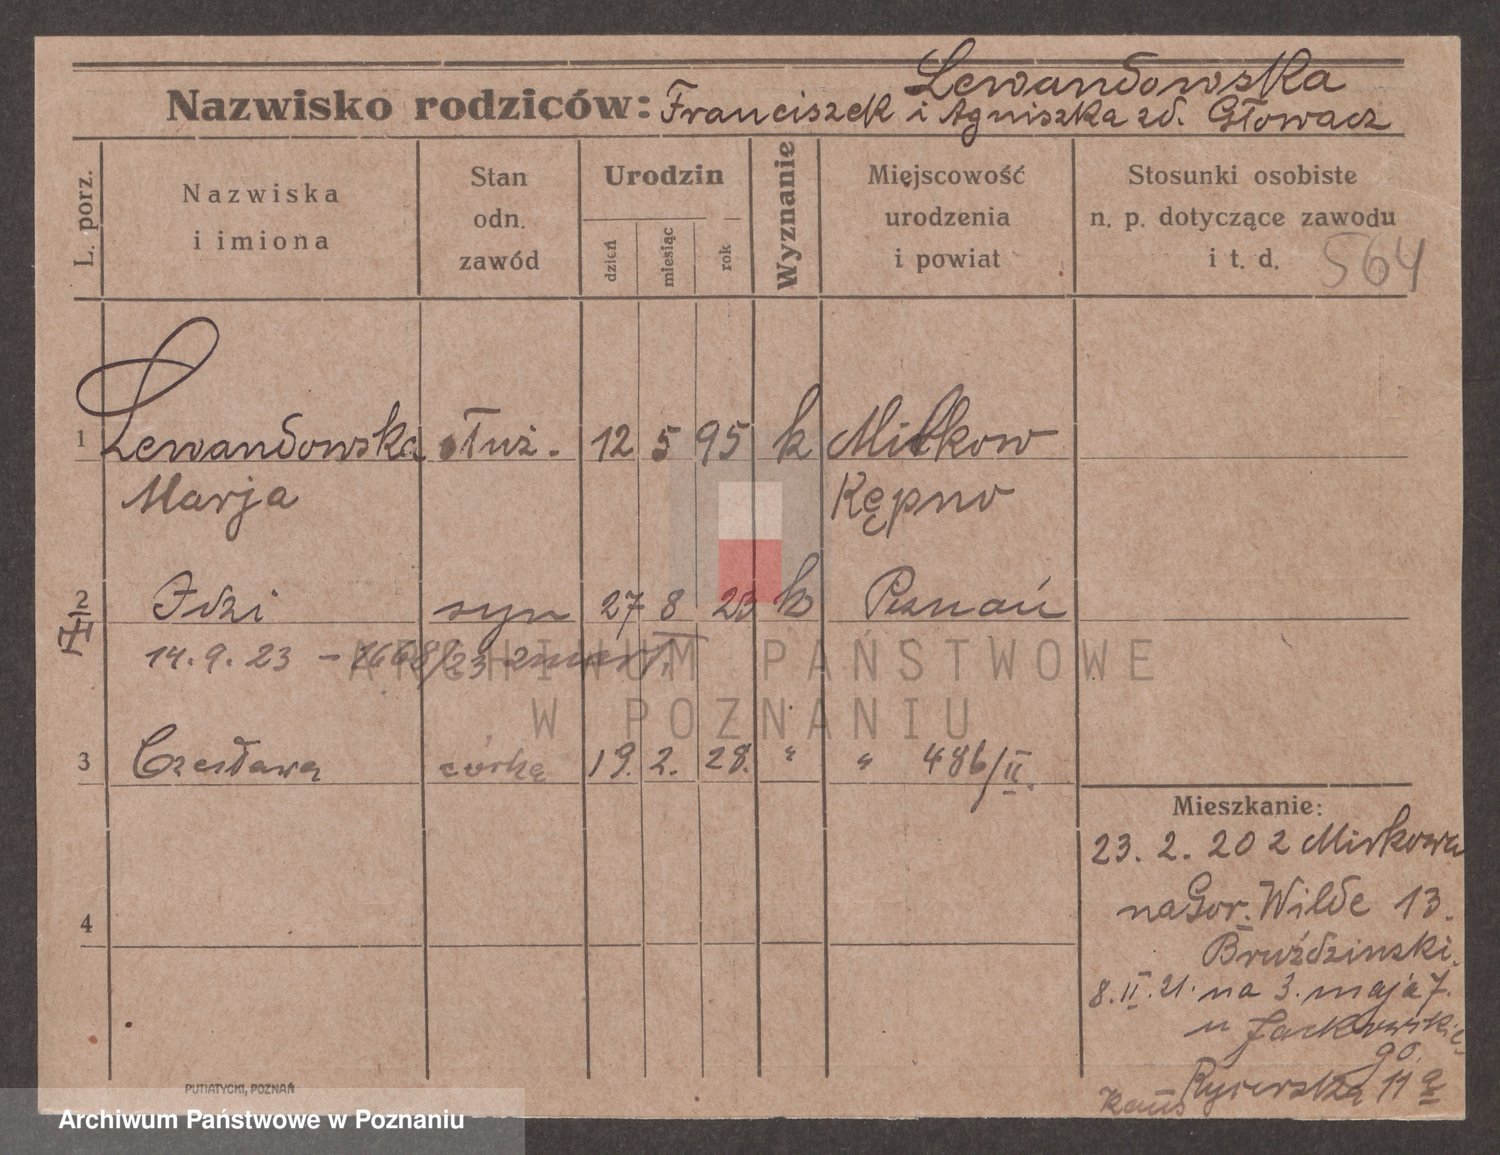 Lewandowska
Nazwisko rodziców: Franciszek i Agnieszka zd. Głowacz
L. porz.
Nazwiska
i imiona
Stan
odn.
zawód
Urodzin
dzień
miesiąc
rok
Wyznanie
Miejscowość
urodzenia
i powiat
Stosunki osobiste
n. p. dotyczące zawodu
i t. d.
564
1 Lewandowska służ. 12 5 95 k
Marja Kępno
2 Idzi syn 27 8 23 k Poznań
14. 9. 23 zmarł.
3 Czesława córka 19. 2. 28. " " 486/II.
4
Mieszkanie:
23. 2. 20 z Mirkowa
na Gór. Wilde 13.
Bruździnski.
8. II. 21. na 3. maja 7.
u Jackowskie
go.
Rycerska 11
PUTIATYCKI, POZNAŃ
ARCHIWUM PAŃSTWOWE
W POZNANIU
Archiwum Państwowe w Poznaniu